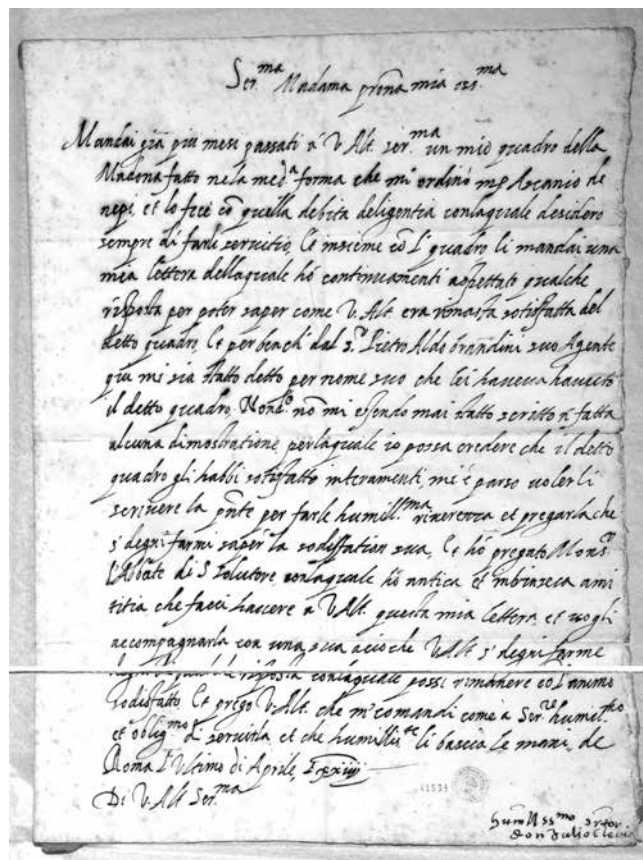 Ser.ma Madama prona mia oss.ma
Mandai già più mesi passati à V. Alt. ser.ma un mio quadro della
Madona fatto nela med.a forma che mi ordinò mr Ascanio de
nepi, et lo feci cō quella debita deligentia conlaquale desidero
sempre di farli servitio, Et insieme cō l' quadro li mandai una
mia lettera dellaquale hò continuamenti aspettato qualche
risposta per poter saper come V. Alt. era rimasta sotisfatta del
detto quadro, Et perbenchi dal s.r Pietro Aldobrandini suo Agente
qui mi sia statto detto per nome suo che lei haveva havuto
il detto quadro, Nond.o nō mi essendo mai statto scritto ò fatta
alcuna dimostratione, perlaquale io possa credere che il detto
quadro gli habbi sotisfatto interamenti, mi è parso volerli
scrivere la pnte per farle humill.ma riverenza et pregarla che
s' degni farmi saper la sodisfation sua, Et hò pregato Mons.r
l'Abbate di S. Salvatore, conlaquale hò antica et intrinseca ami
titia, che facci havere a V. Alt. questa mia lettera et vogli
accompagnarla con una sua acioche V. Alt. s' degni farme
risposta conlaquale possi rimanere cō l' animo
sodisfatto, Et prego V. Alt. che m' comandi come à Ser.re humil.mo
et oblig.mo di servirla et che humilli.te li bascia le mani, de
Roma l' Ultimo di Aprile,
Di V. Alt. Ser.ma
41531
humilss.mo s.tor
don Julio Clovio